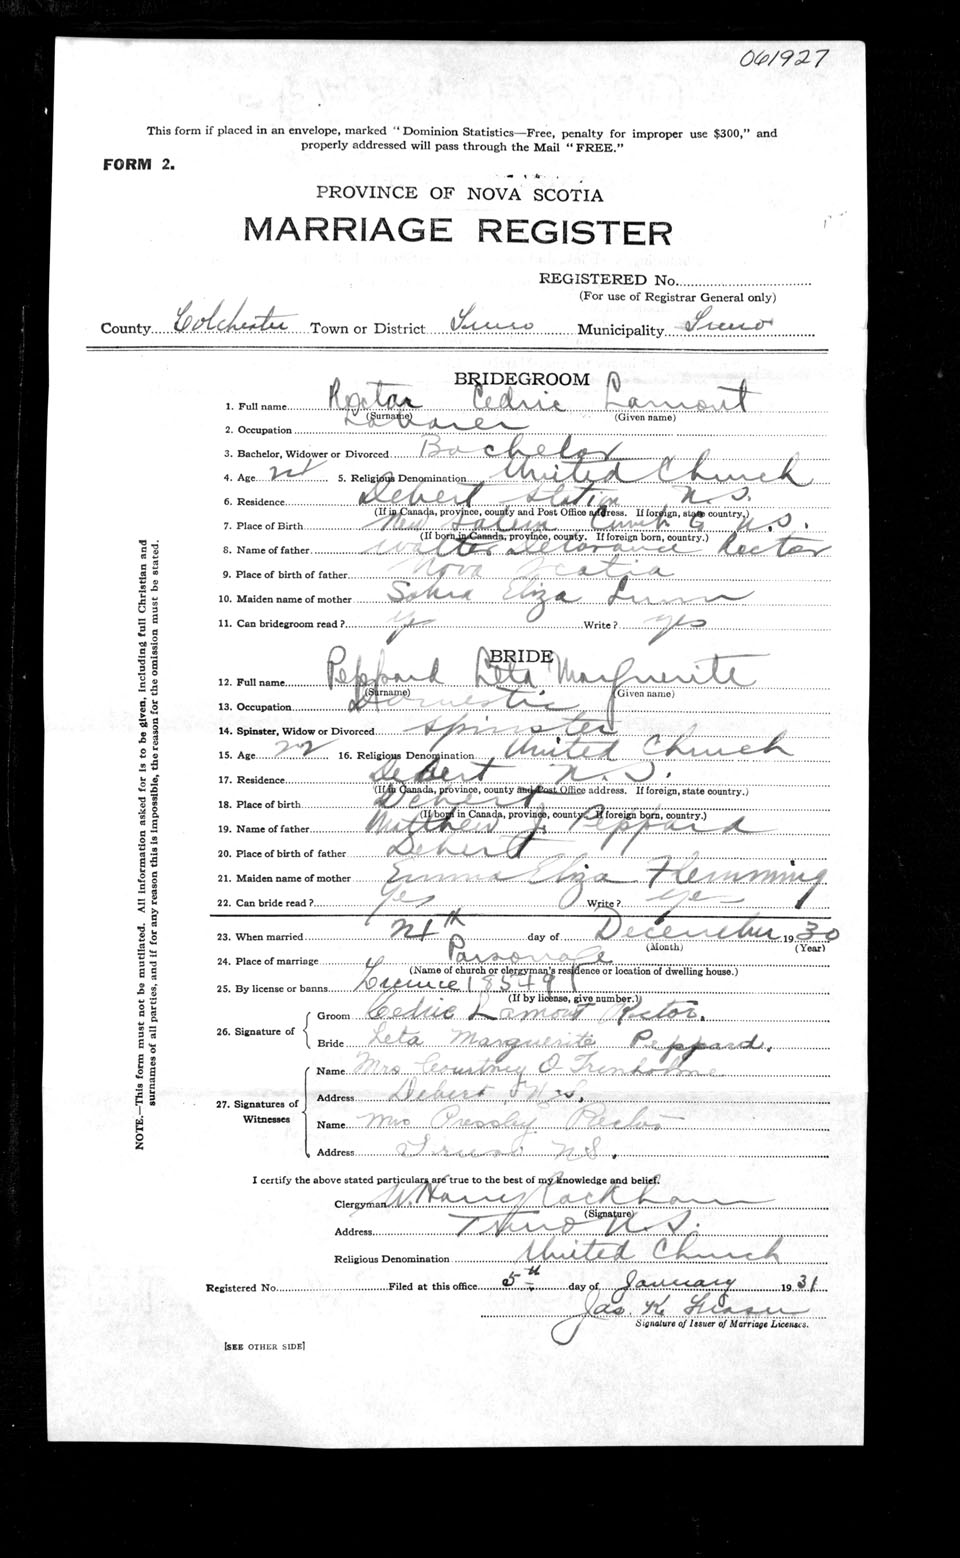 061927
This form if placed in an envelope, marked "Dominion Statistics—Free, penalty for improper use $300," and
properly addressed will pass through the Mail "FREE."
FORM 2.
PROVINCE OF NOVA SCOTIA
MARRIAGE REGISTER
REGISTERED No.
(For use of Registrar General only)
County Colchester Town or District Truro Municipality Truro
BRIDEGROOM
1. Full name Rector Cedric Lamont
(Surname) (Given name)
2. Occupation Labourer
3. Bachelor, Widower or Divorced Bachelor
4. Age 5. Religious Denomination United Church
6. Residence Debert Station N.S.
(If in Canada, province, county and Post Office address. If foreign, state country.)
7. Place of Birth New Salem Cumb. Co N.S.
(If born in Canada, province, county. If foreign born, country.)
8. Name of father Walter Rector
9. Place of birth of father Nova Scotia
10. Maiden name of mother Eliza
11. Can bridegroom read? yes Write? yes
BRIDE
12. Full name Peppard Leta Marguerite
(Surname) (Given name)
13. Occupation Domestic
14. Spinster, Widow or Divorced Spinster
15. Age 22 16. Religious Denomination United Church
17. Residence Debert N.S.
(If in Canada, province, county and Post Office address. If foreign, state country.)
18. Place of birth Debert
(If born in Canada, province, county. If foreign born, country.)
19. Name of father Matthew J. Peppard
20. Place of birth of father Debert
21. Maiden name of mother Emma Eliza Flemming
22. Can bride read? Yes Write? yes
23. When married 24th day of December 1930
(Month) (Year)
24. Place of marriage Parsonage
(Name of church or clergyman's residence or location of dwelling house.)
25. By license or banns License 18549
(If by license, give number.)
26. Signature of
Groom Cedric Lamont Rector.
Bride Leta Marguerite Peppard.
27. Signatures of Witnesses
Name Mrs Courtney O Trenholme
Address Debert N.S.
Name Mrs Pressley Rector
Address Truro N.S.
I certify the above stated particulars are true to the best of my knowledge and belief.
Clergyman W. Harry Rackham
(Signature)
Address Truro N.S.
Religious Denomination United Church
Registered No. Filed at this office 5th day of January 1931
Jas. K. Fraser
Signature of Issuer of Marriage Licenses.
[SEE OTHER SIDE]
NOTE.—This form must not be mutilated. All information asked for is to be given, including full Christian and
surnames of all parties, and if for any reason this is impossible, the reason for the omission must be stated.